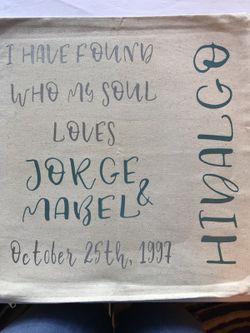 I HAVE FOUND
WHO MY SOUL
LOVES
JORGE
& MABEL
October 25th, 1997
HIDALGO